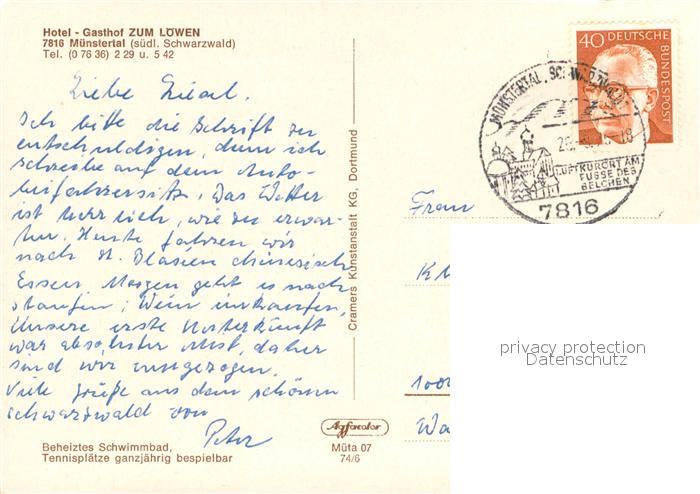 Hotel - Gasthof ZUM LÖWEN
7816 Münstertal (südl. Schwarzwald)
Tel. (0 76 36) 2 29 u. 5 42
Liebe
Ich bitte die Schrift zu
entschuldigen, denn ich
schreibe auf dem Auto-
beifahrersitz. Das Wetter
ist herrlich, wie zu erwar-
ten. Heute fahren wir
nach St. Blasien chinesisch
Essen. Morgen geht es nach
Staufen, Wein einkaufen.
Unsere erste Unterkunft
war absoluter Mist, daher
sind wir umgezogen.
Viele Grüße aus dem schönen
Schwarzwald von
Peter
Beheiztes Schwimmbad,
Tennisplätze ganzjährig bespielbar
Cramers Kunstanstalt KG, Dortmund
Agfacolor
Müta 07
74/6
40 DEUTSCHE
BUNDESPOST
MÜNSTERTAL, SCHWARZWALD
LUFTKURORT AM
FUSSE DES
BELCHEN
7816
Frau
privacy protection
Datenschutz